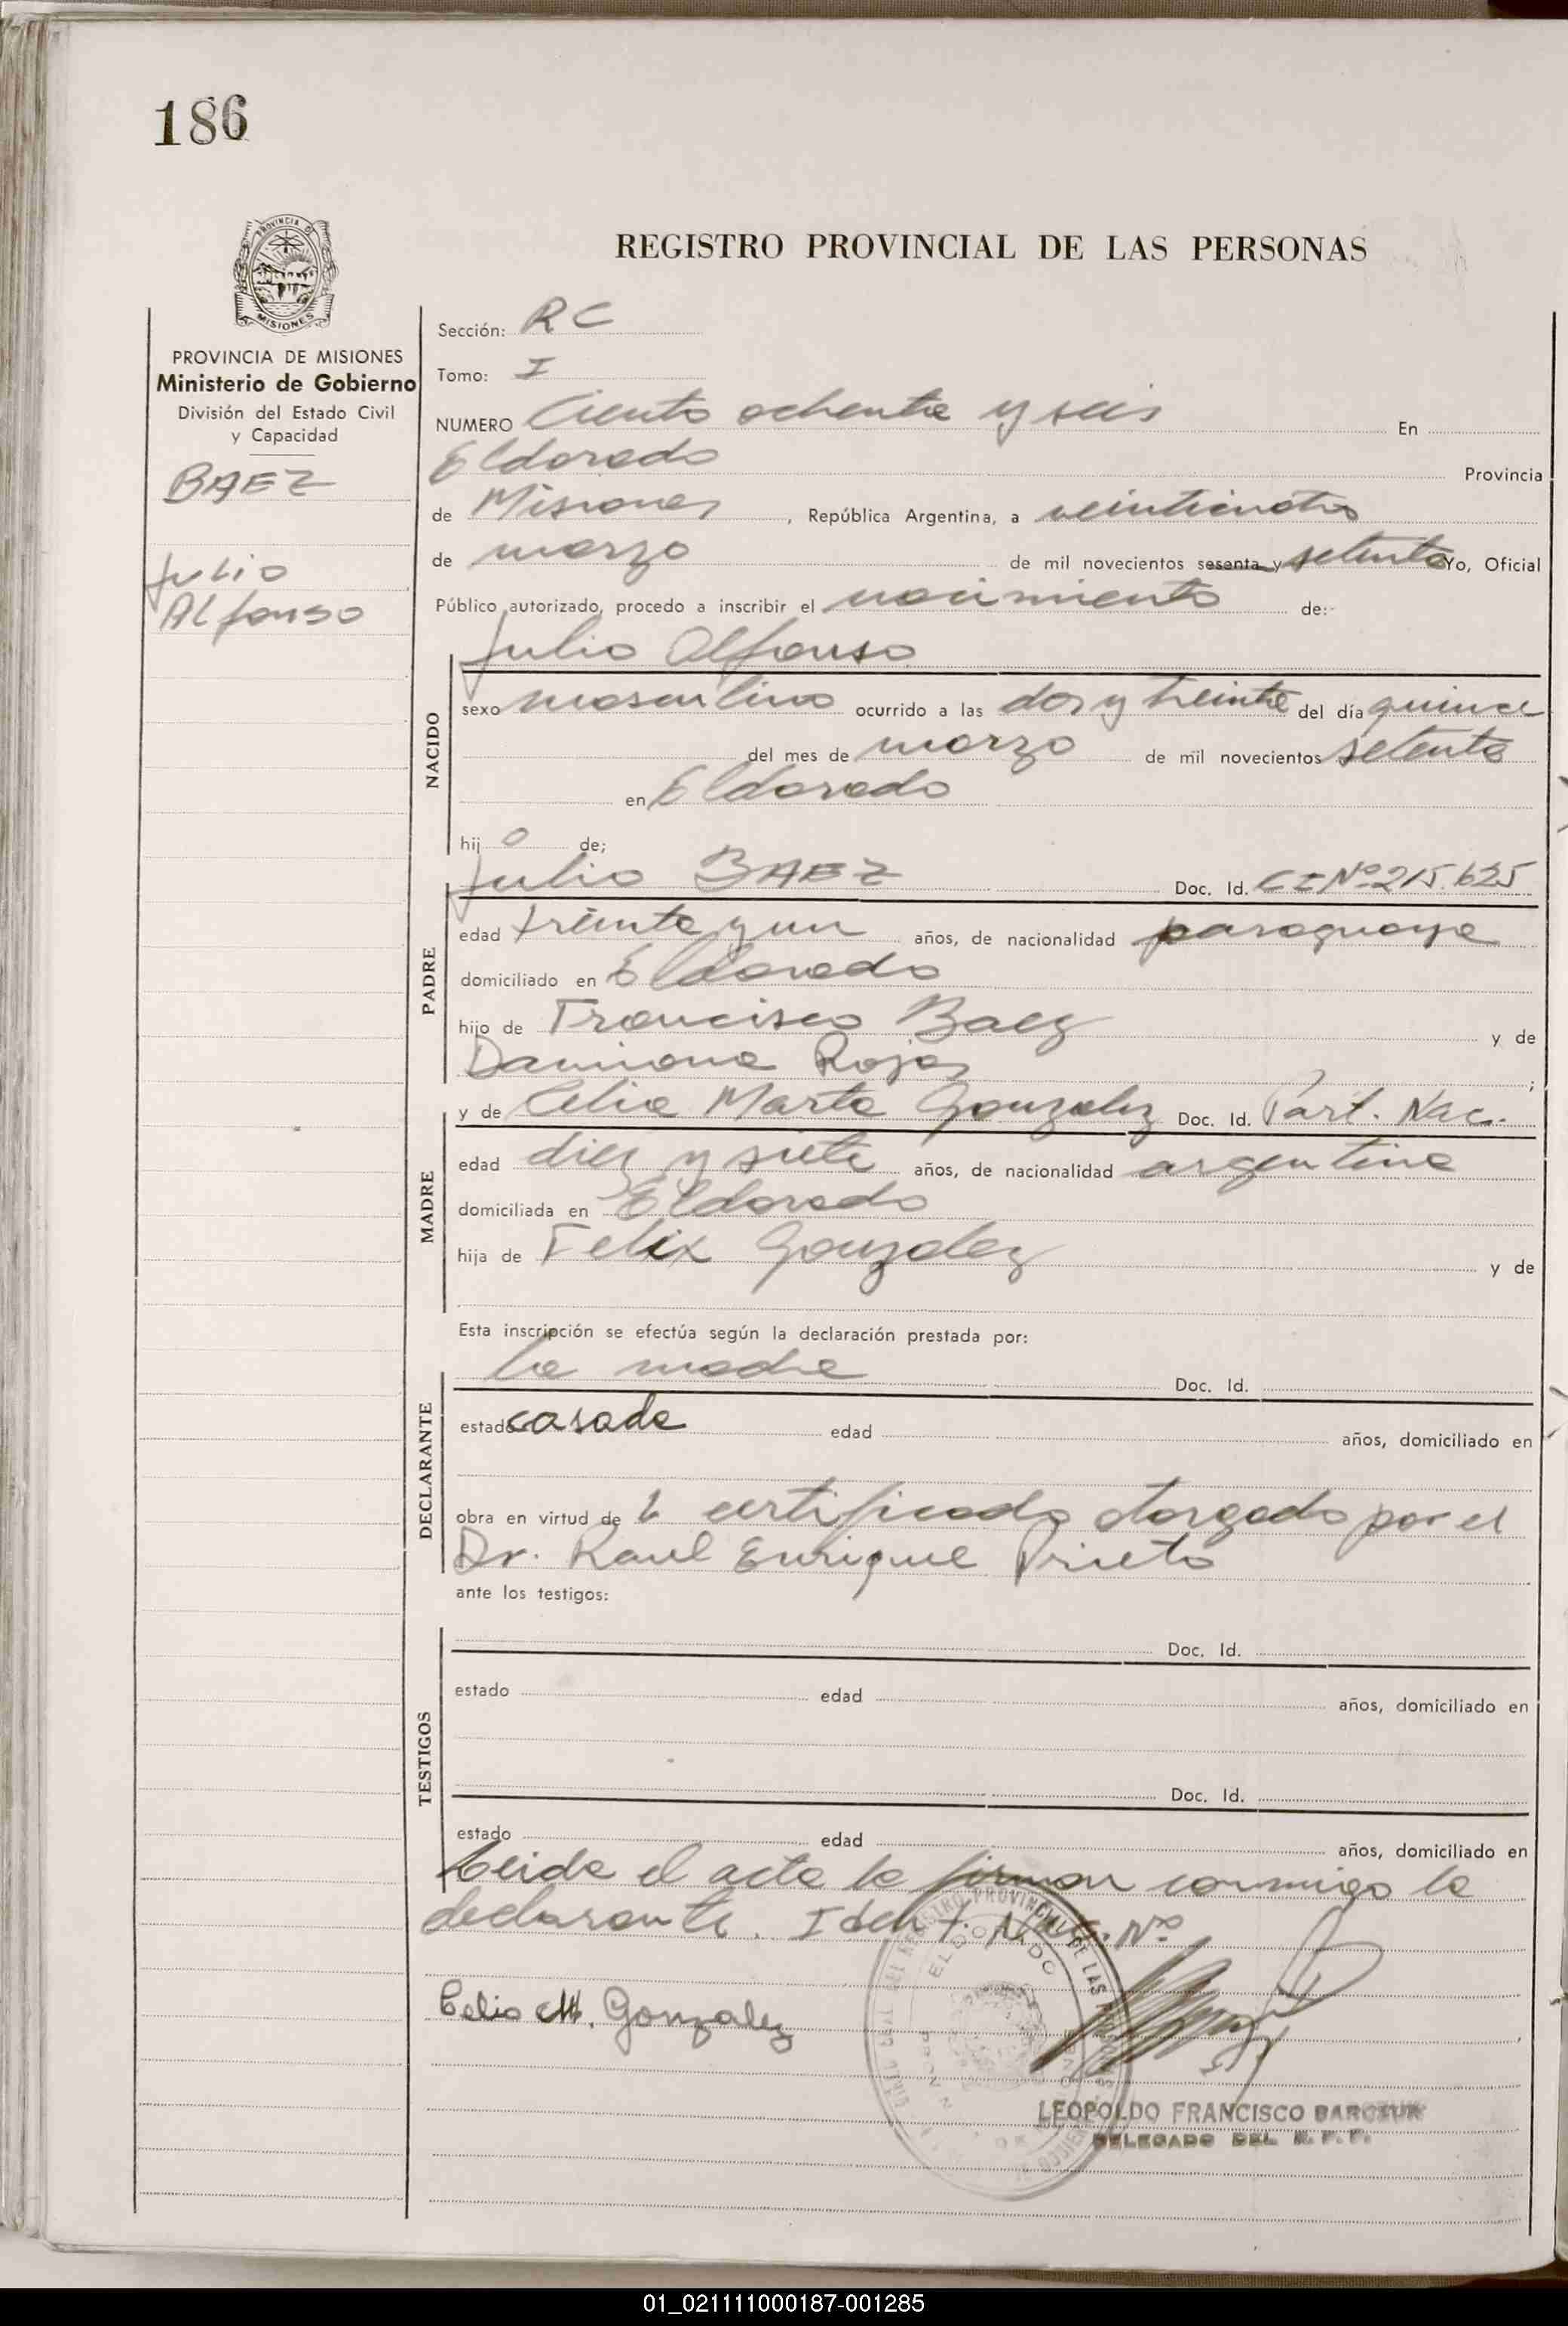 186
PROVINCIA DE MISIONES
PROVINCIA DE MISIONES
Ministerio de Gobierno
División del Estado Civil
y Capacidad
BAEZ
Julio
Alfonso
REGISTRO PROVINCIAL DE LAS PERSONAS
Sección: RC
Tomo: I
NUMERO Ciento ochenta y seis En
Eldorado Provincia
de Misiones, República Argentina, a veinticuatro
de marzo de mil novecientos sesenta y setenta Yo, Oficial
Público autorizado, procedo a inscribir el nacimiento de:-
Julio Alfonso
NACIDO
sexo masculino ocurrido a las dos y treinta del día quince
del mes de marzo de mil novecientos setenta
en Eldorado
hij o de;
Julio BAEZ Doc. Id. CI Nº 215.625
PADRE
edad treinta y un años, de nacionalidad paraguaya
domiciliado en Eldorado
hijo de Francisco Baez y de
Damiana Rojas;
y de Celia Marta Gonzalez Doc. Id. Part. Nac.
MADRE
edad diez y siete años, de nacionalidad argentina
domiciliada en Eldorado
hija de Felix Gonzalez y de
Esta inscripción se efectúa según la declaración prestada por:
La madre Doc. Id.
DECLARANTE
estado casada edad años, domiciliado en
obra en virtud de certificado otorgado por el
Dr. Raul Enrique Prieto
ante los testigos:
Doc. Id.
TESTIGOS
estado edad años, domiciliado en
Doc. Id.
estado edad años, domiciliado en
Leida el acta la firman conmigo la
declarante. Ident. Nac. Nº
Celia M. Gonzalez
REGISTRO PROVINCIAL DE LAS
ELDORADO
LEOPOLDO FRANCISCO
DELEGADO DEL
01_021111000187-001285